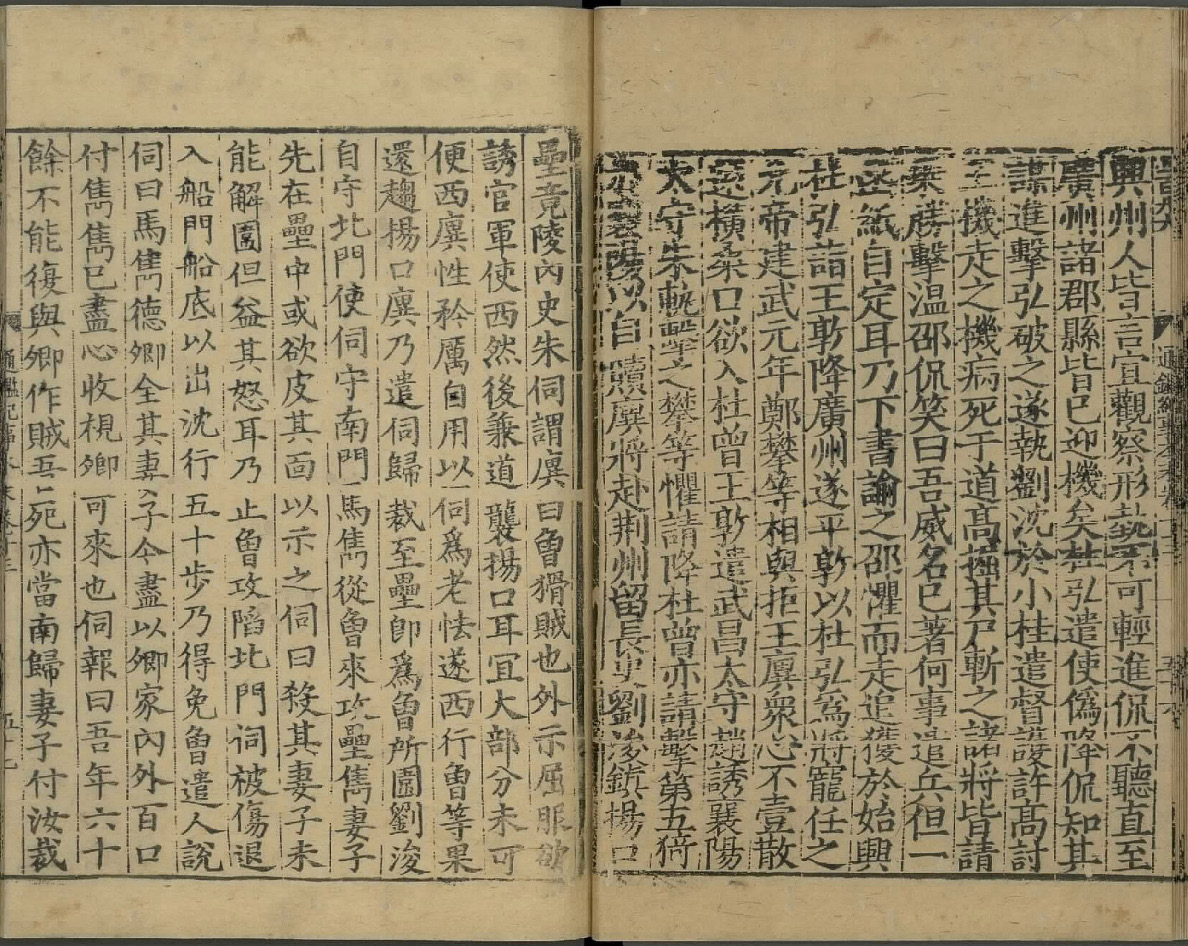 晉九 通鑑紀事本末卷 五十六
興州人皆言宜觀察形勢不可輕進侃不聽直至
廣州諸郡縣皆已迎機矣杜弘遣使偽降侃知其
謀進擊弘破之遂執劉沈於小桂遣督護許高討
王機走之機病死于道高掘其尸斬之諸將皆請
乗勝擊溫邵侃笑曰吾威名已著何事遣兵但一
函紙自定耳乃下書諭之邵懼而走追獲於始興
杜弘詣王敦降廣州遂平敦以杜弘爲將寵任之
元帝建武元年鄭攀等相與拒王廙衆心不壹散
還橫桑口欲入杜曾王敦遣武昌太守趙誘襄陽
太守朱軌擊之攀等懼請降杜曾亦請擊第五猗
於襄陽以自贖廙將赴荆州留長史劉浚鎮揚口
壘竟陵內史朱伺謂廙曰曾猾賊也外示屈服欲
誘官軍使西然後兼道襲揚口耳宜大部分未可
便西廙性矜厲自用以伺爲老怯遂西行曾等果
還趨揚口廙乃遣伺歸裁至壘即爲曾所圍劉浚
自守北門使伺守南門馬雋從曾來攻壘雋妻子
先在壘中或欲皮其面以示之伺曰殺其妻子未
能解圍但益其怒耳乃止曾攻陷北門伺被傷退
入船門船底以出沈行五十步乃得免曾遣人說
伺曰馬雋德卿全其妻子今盡以卿家內外百口
付雋雋已盡心收視卿可來也伺報曰吾年六十
餘不能復與卿作賊吾死亦當南歸妻子付汝裁
通鑑紀事本末卷十三 五十七